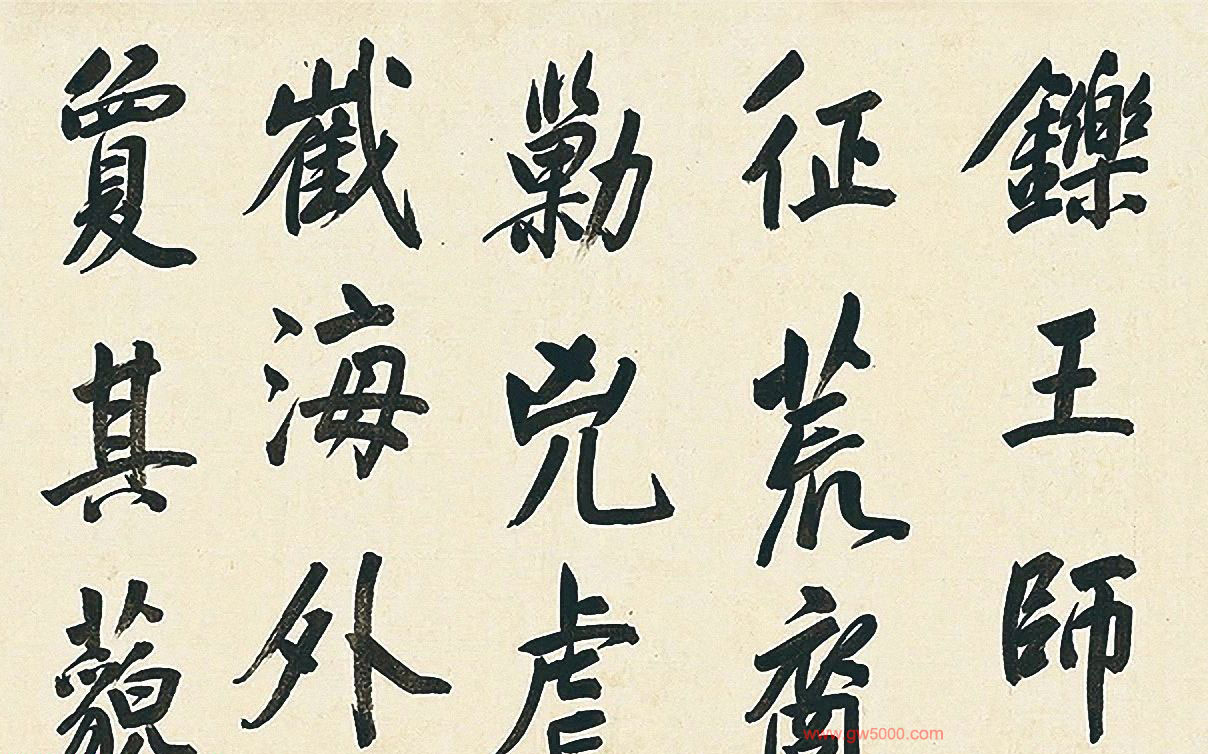 鑠王師
征荒裔
勦兇虐
截海外
夐其藐
www.gw5000.com